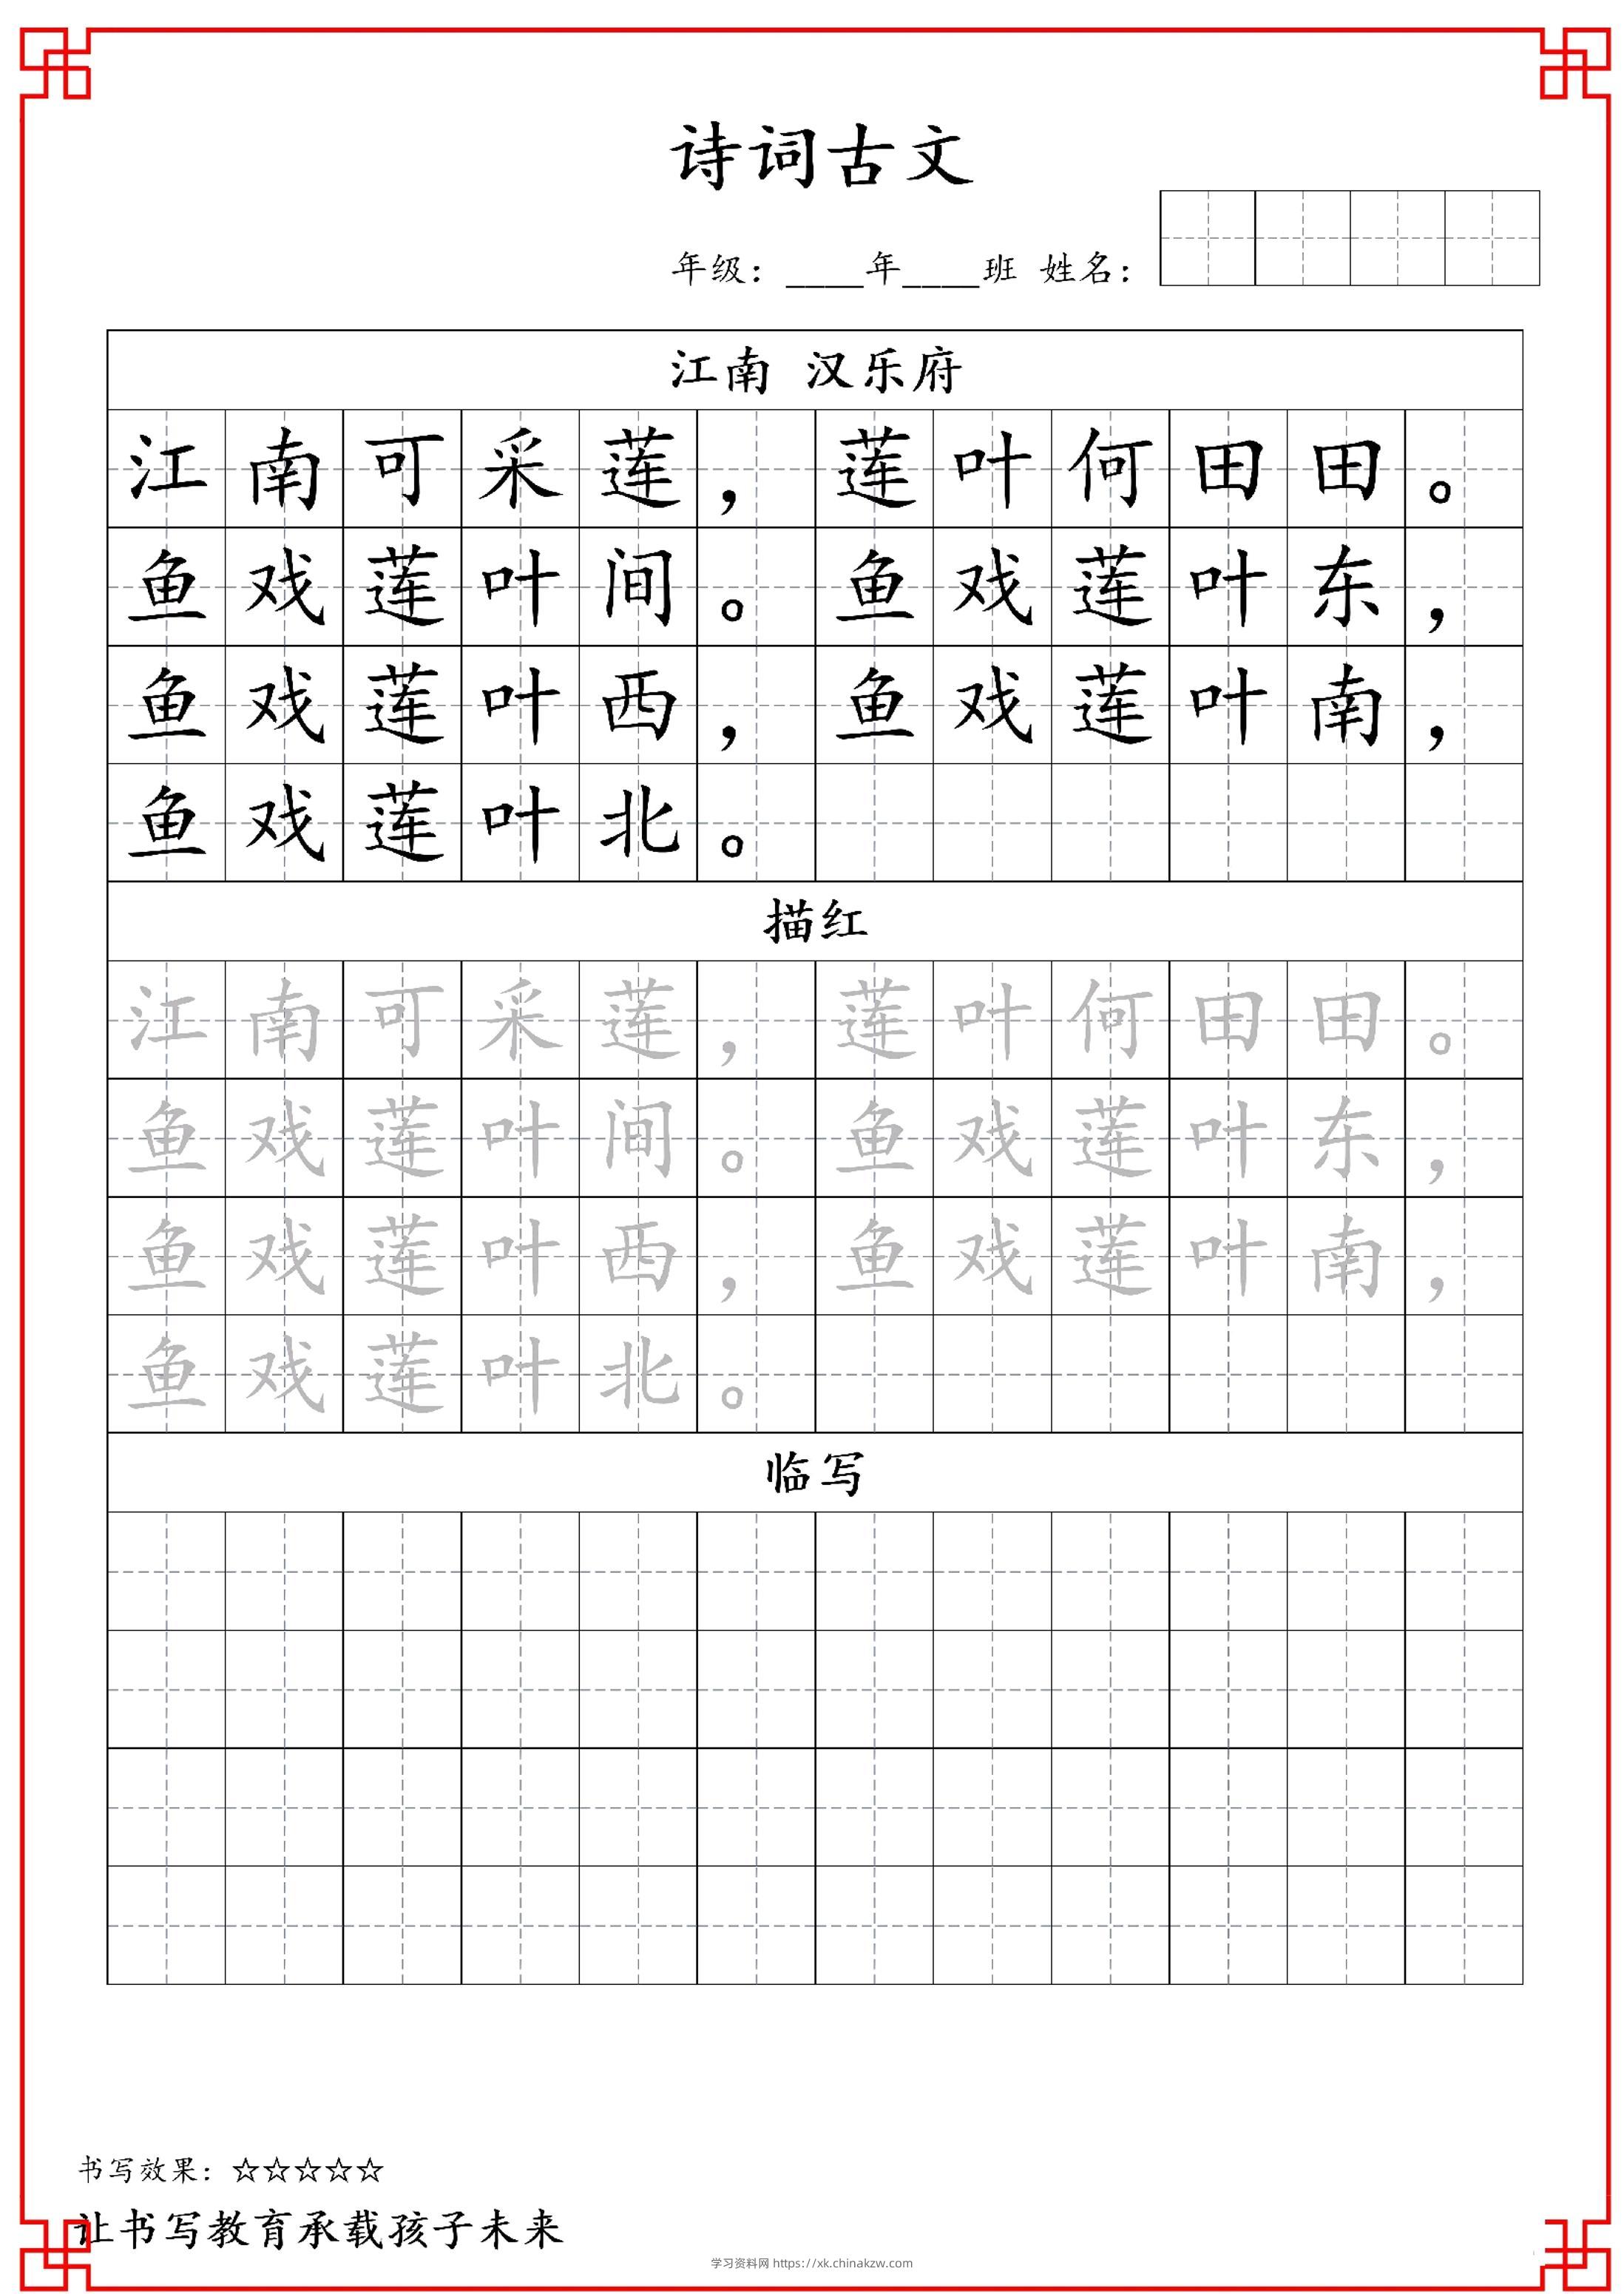 诗词古文
年级：____年____班 姓名：
江南 汉乐府
江南可采莲，莲叶何田田。
鱼戏莲叶间。鱼戏莲叶东，
鱼戏莲叶西，鱼戏莲叶南，
鱼戏莲叶北。
描红
江南可采莲，莲叶何田田。
鱼戏莲叶间。鱼戏莲叶东，
鱼戏莲叶西，鱼戏莲叶南，
鱼戏莲叶北。
临写
书写效果：☆☆☆☆☆
让书写教育承载孩子未来
学习资料网 https://xk.chinakzw.com